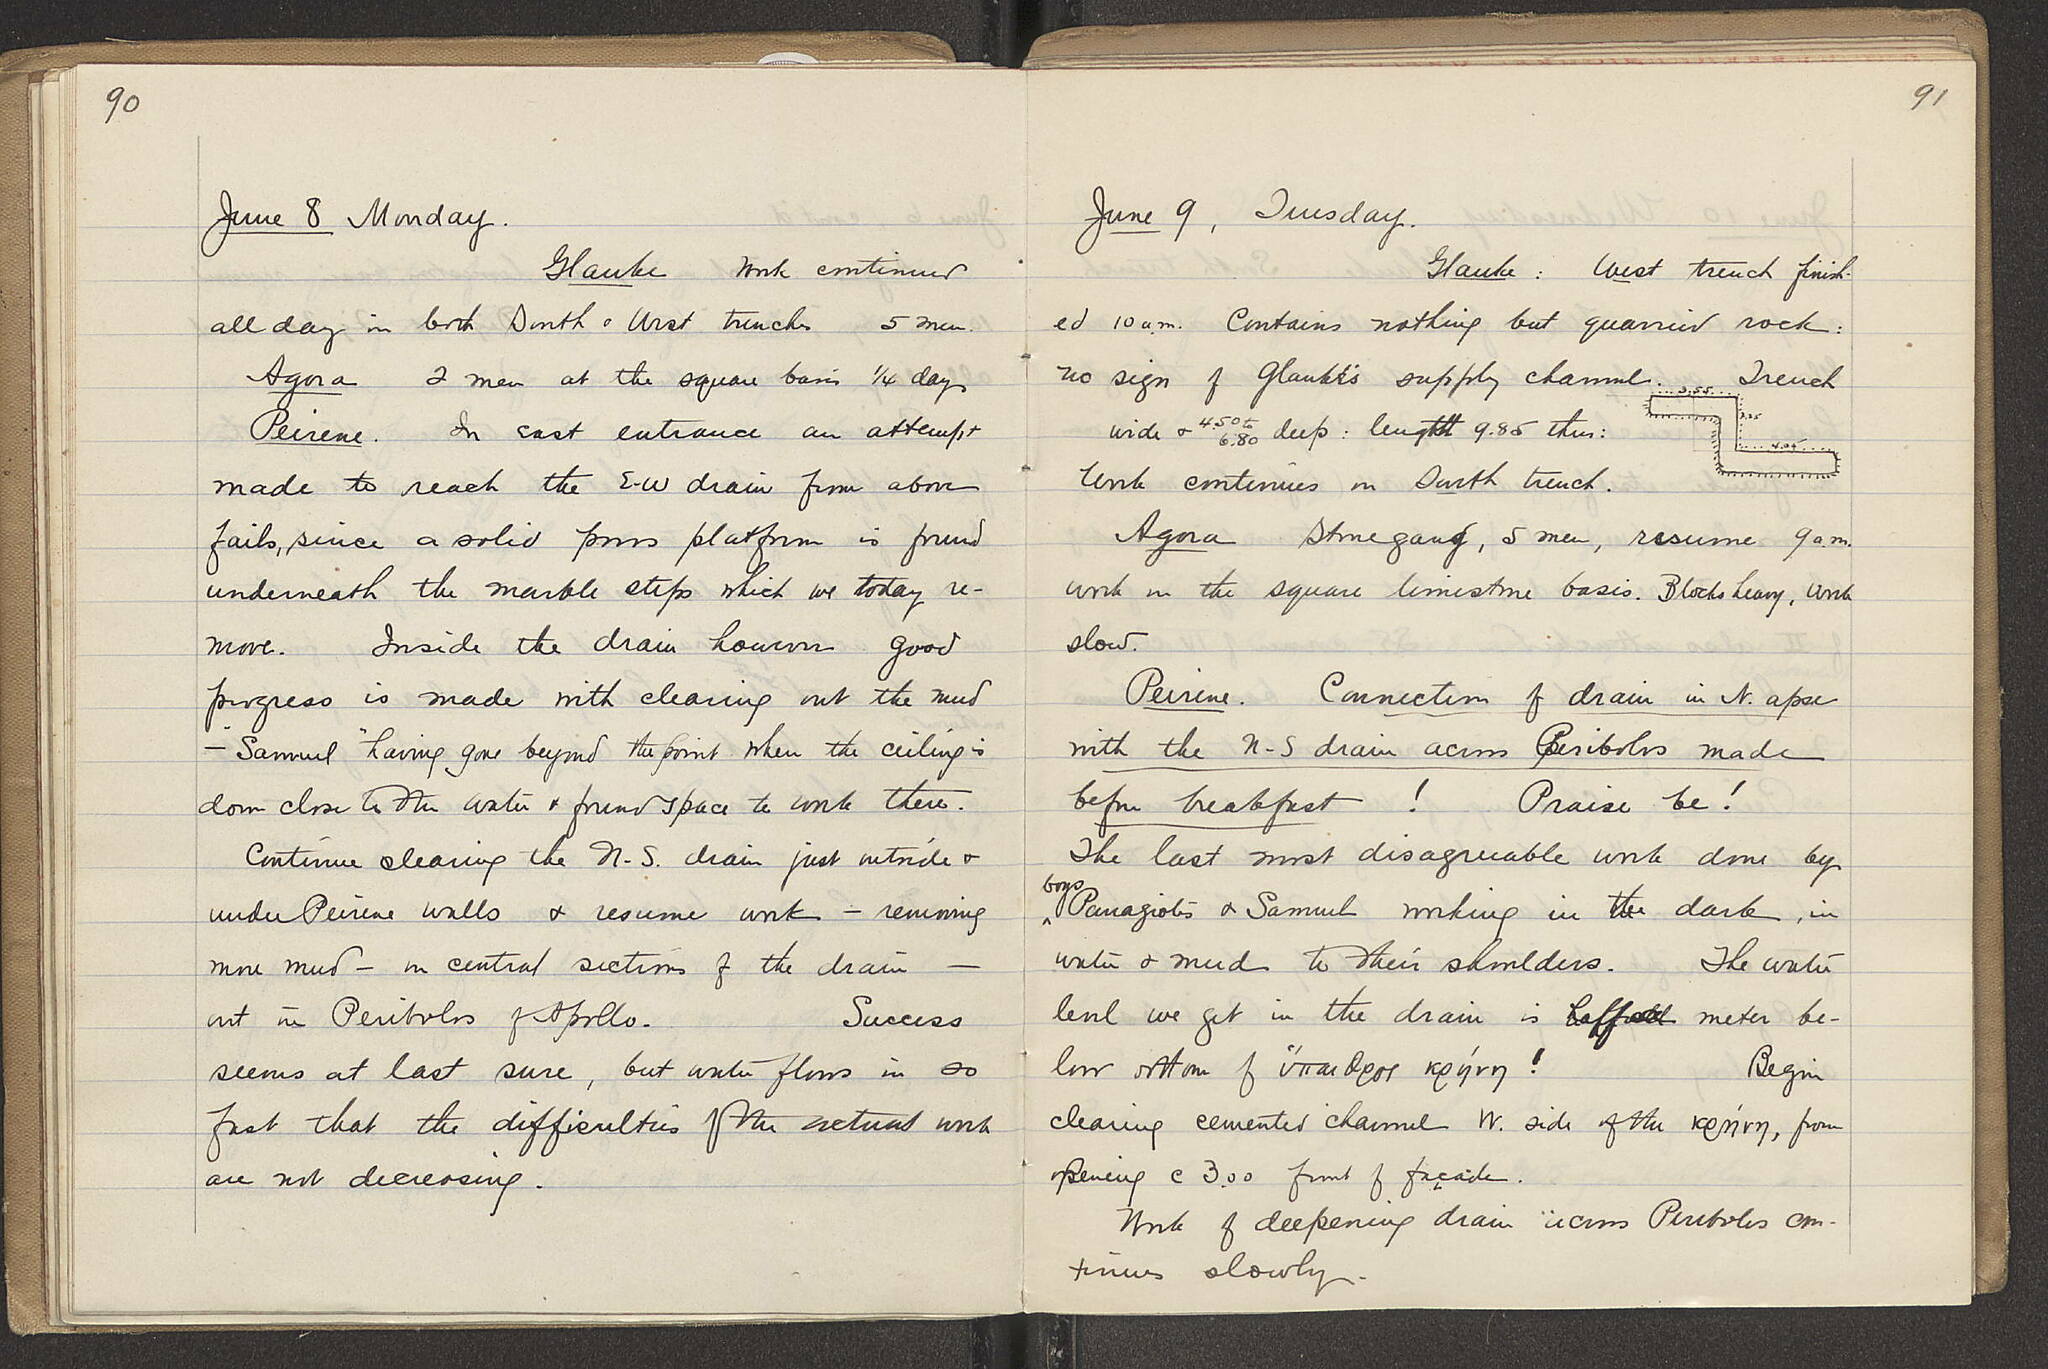 90
June 8 Monday.
Glauke Work continued
all day in both South & West trenches 5 men.
Agora 2 men at the square basis 1/4 day
Peirene. In east entrance an attempt
made to reach the E-W drain from above
fails, since a solid poros platform is found
underneath the marble steps which we today re-
move. Inside the drain however good
progress is made with clearing out the mud
– "Samuel" having gone beyond the point when the ceiling is
down close to the water & found space to work there.
Continue clearing the N.-S. drain just outside &
under Peirene walls & resume work – removing
more mud – in central sections of the drain –
out in Peribolos of Apollo. Success
seems at last sure, but water flows in so
fast that the difficulties of the actual work
are not decreasing.
91
June 9, Tuesday.
Glauke: West trench finish-
ed 10 a.m. Contains nothing but quarried rock:
no sign of Glauke's supply channel. Trench
3.55
wide & 4.50 to 6.80 deep: length 9.85 thus:
4.05
Work continues in South trench.
Agora Stonegang, 5 men, resume 9 a.m.
work in the square limestone basis. Blocks heavy, work
slow.
Peirene. Connection of drain in N. apse
with the N-S drain across Peribolos made
before breakfast! Praise be!
The last most disagreeable work done by
boys Panagiotis & Samuel working in the dark, in
water & mud to their shoulders. The water
level we get in the drain is half meter be-
low bottom of ὕπαιθρος κρήνη! Begin
clearing cemented channel W. side of the κρήνη, from
opening c 3.00 front of façade.
Work of deepening drain across Peribolos con-
tinues slowly.